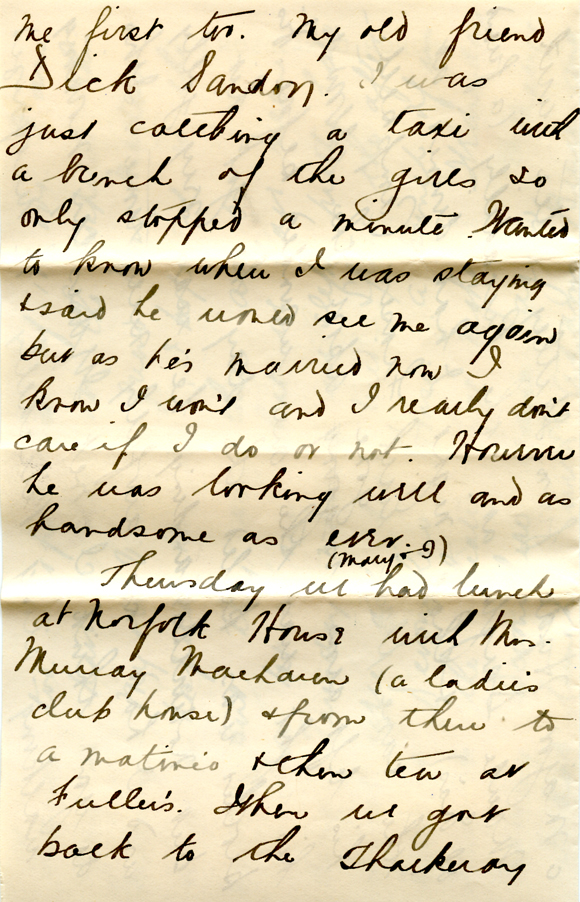 me first too. My old friend
Dick Sandory. I was
just catching a taxi with
a bunch of the girls so
only stopped a minute. Wanted
to know when I was staying
& said he would see me again
but as he's married now I
know I won't and I really don't
care if I do or not. However
he was looking well and as
handsome as ever.
(Mary & I)
Thursday we had lunch
at Norfolk House with Mrs.
Murray (a ladies
club house) & from there to
a matinee & then tea at
Fuller's. When we got
back to the Thackeray